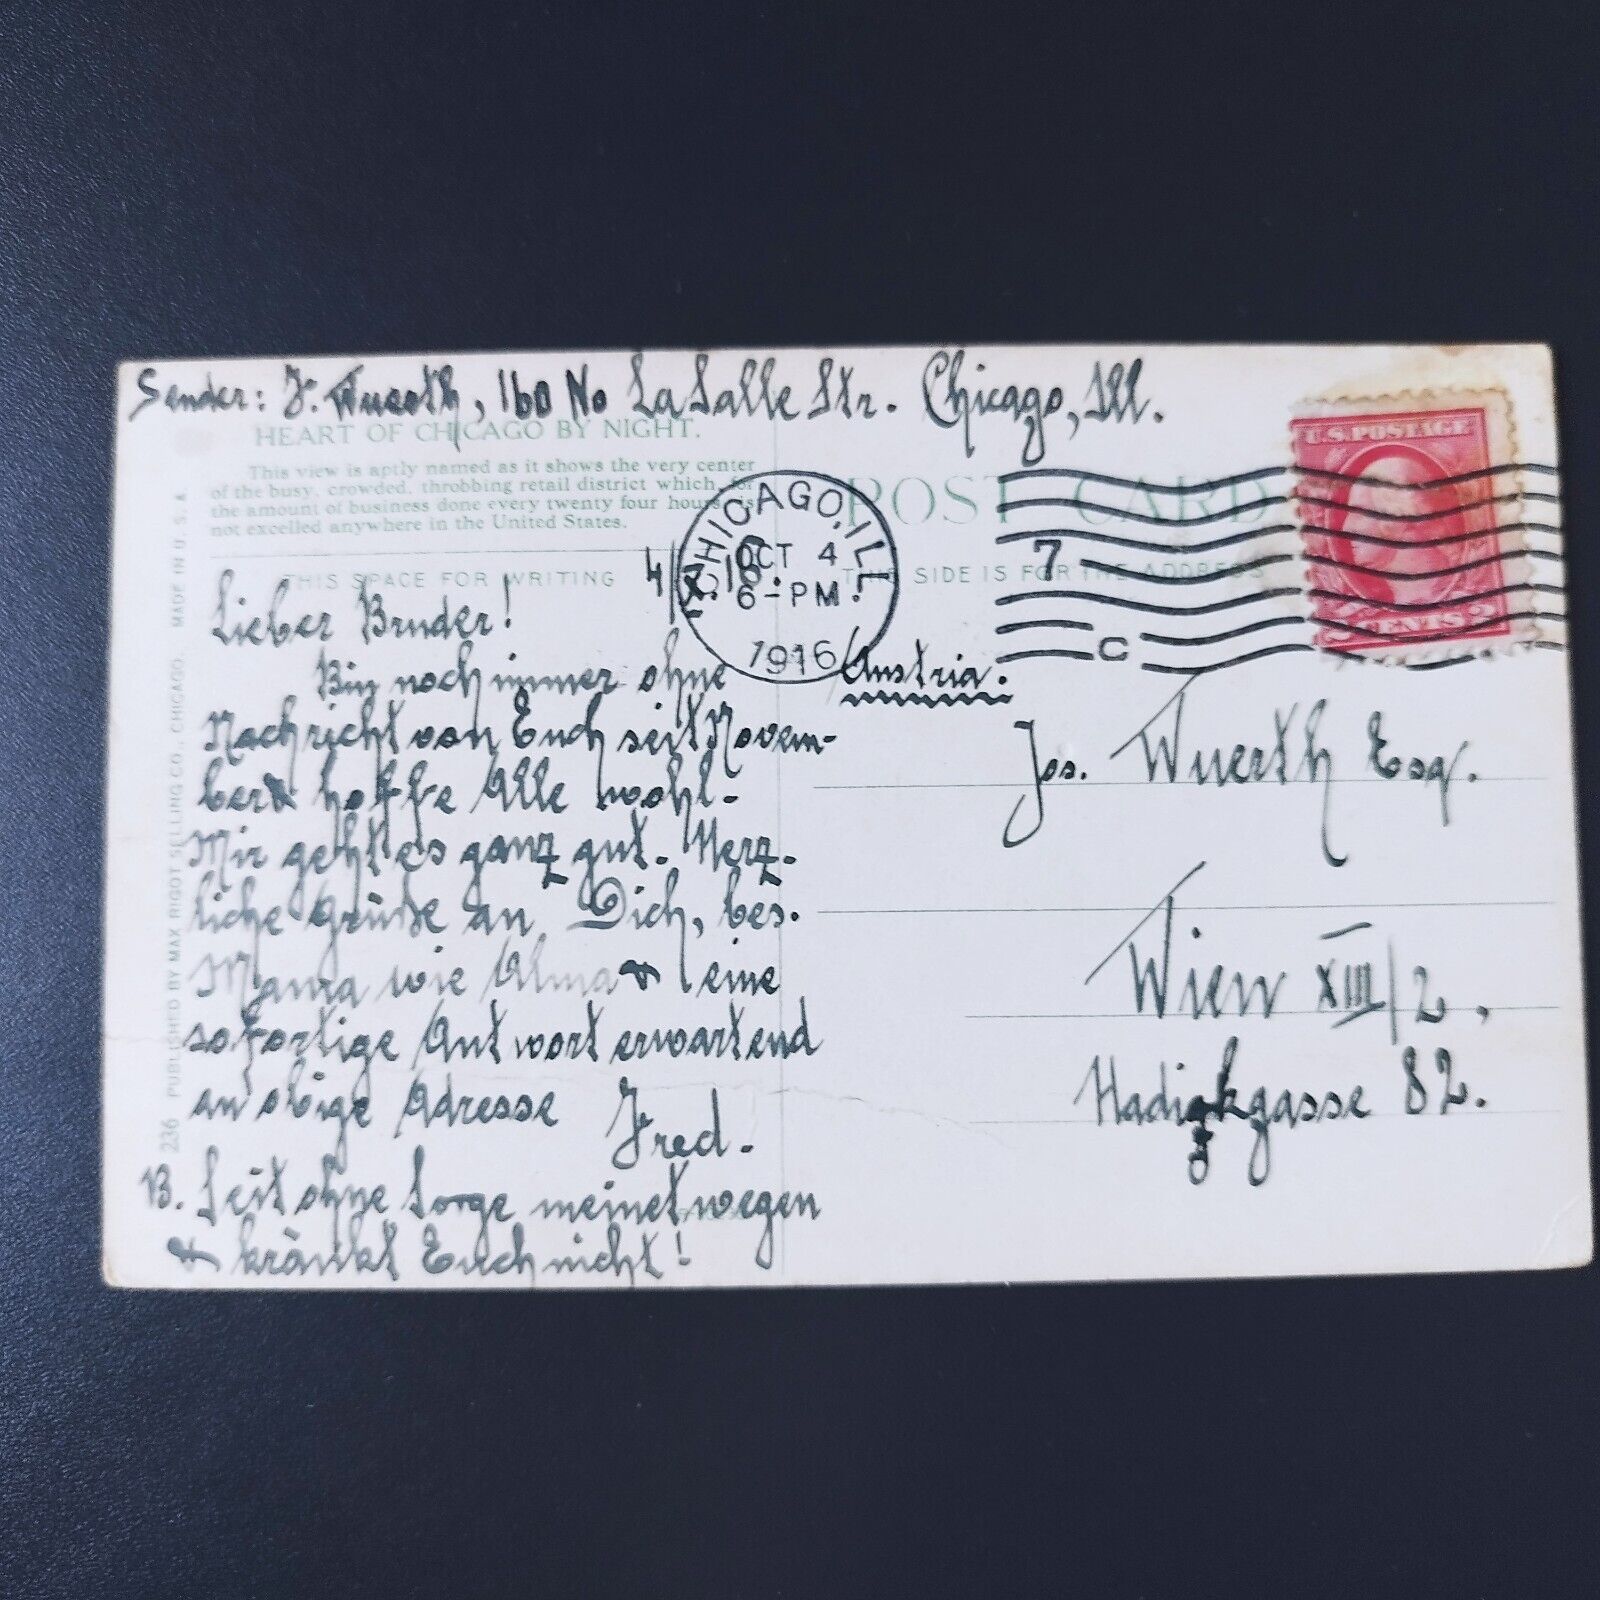 Sender: F. Wuerth, 160 No LaSalle Str. Chicago, Ill.
HEART OF CHICAGO BY NIGHT.
This view is aptly named as it shows the very center
of the busy, crowded, throbbing retail district which, for
the amount of business done every twenty four hours, is
not excelled anywhere in the United States.
THIS SPACE FOR WRITING
4/X.16.
Lieber Bruder!
Bin noch immer ohne
Nachricht von Euch seit Novem-
ber & hoffe Alle wohl.
Mir geht es ganz gut. Herz-
liche Grüße an Dich, bes.
Mama wie Alma & eine
sofortige Antwort erwartend
an obige Adresse
Fred.
B. Seit ohne Sorge meinetwegen
& kränkt Euch nicht!
236 PUBLISHED BY MAX RIGOT SELLING CO., CHICAGO. MADE IN U. S. A.
CHICAGO, ILL.
OCT 4
6-PM
1916
7
C
POST CARD
THIS SIDE IS FOR THE ADDRESS
U.S. POSTAGE
2 CENTS 2
Austria.
Jos. Wuerth Esq.
Wien XIII/2,
Hadikgasse 82.